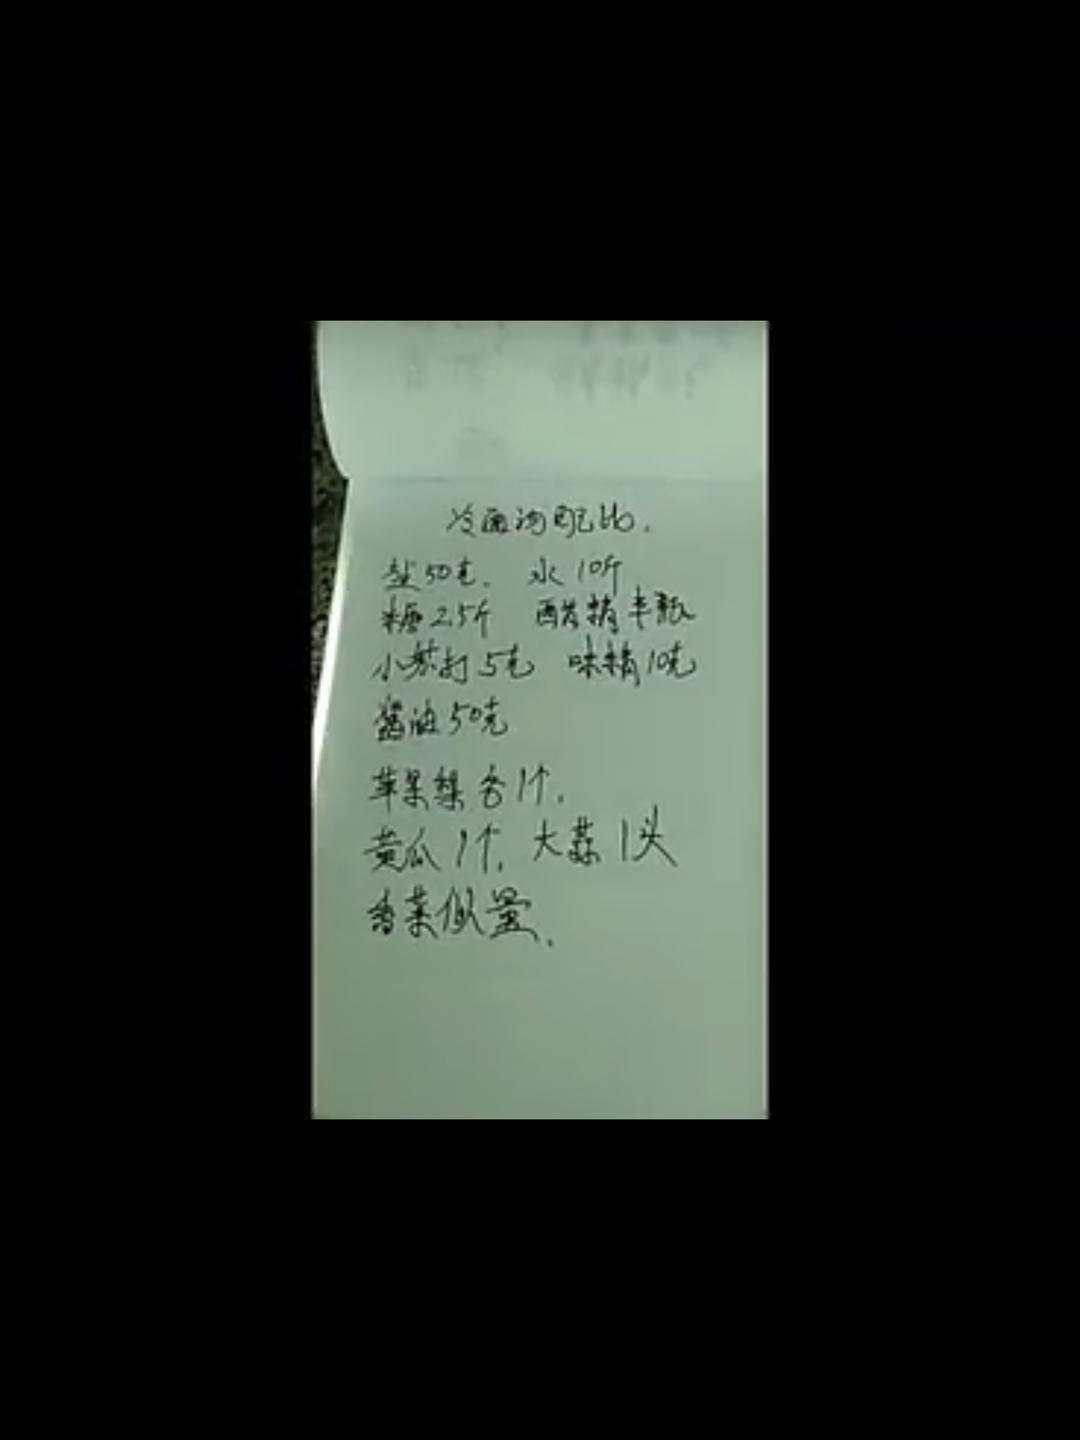 冷面汤配比.
盐50克. 水10斤
糖2.5斤 醋精半瓶
小苏打5克 味精10克
酱油50克
苹果梨各1个.
黄瓜1个. 大蒜1头
香菜似量.